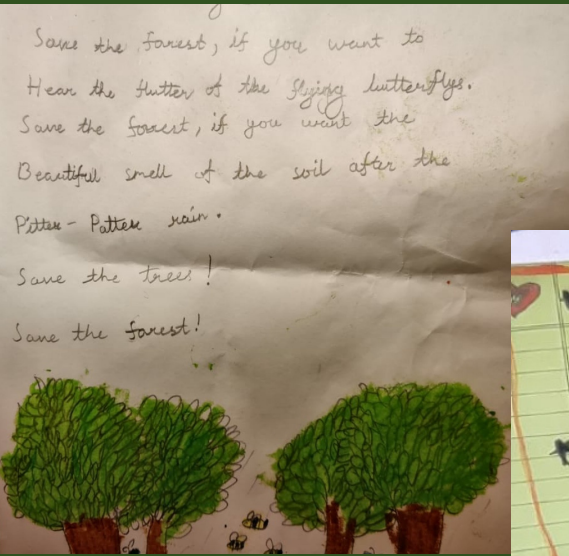 Save the forest, if you want to
Hear the flutter of the flying butterflys.
Save the forest, if you want the
Beautifull smell of the soil after the
Pitter-Patter rain.
Save the trees!
Save the forest!